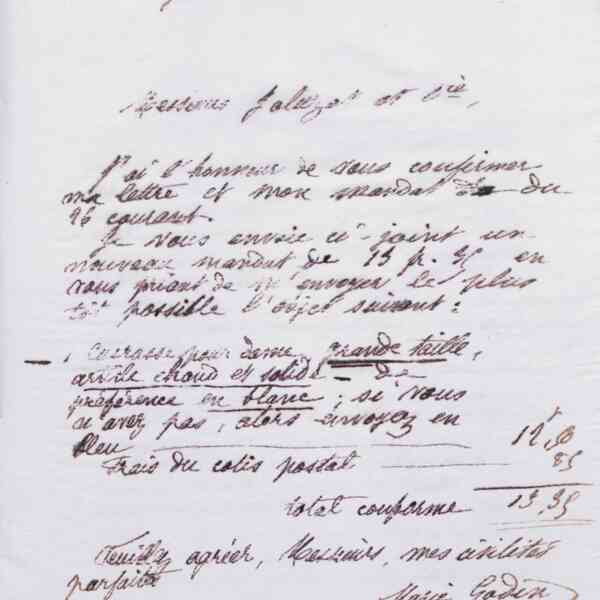 Messieurs Jaluzot et Cie,
J'ai l'honneur de vous confirmer
ma lettre et mon mandat du
26 courant.
Je vous envoie ci-joint un
nouveau mandat de 13 f. 35 en
vous priant de m'envoyer le plus
tôt possible l'objet suivant :
1 Cuirasse pour dame, grande taille,
article chaud et solide - de
préférence en blanc ; si vous
n'avez pas, alors envoyez en
bleu 12,50
Frais du colis postal 85
total conforme 13,35
Veuillez agréer, Messieurs, mes civilités
parfaites
Marie Godin